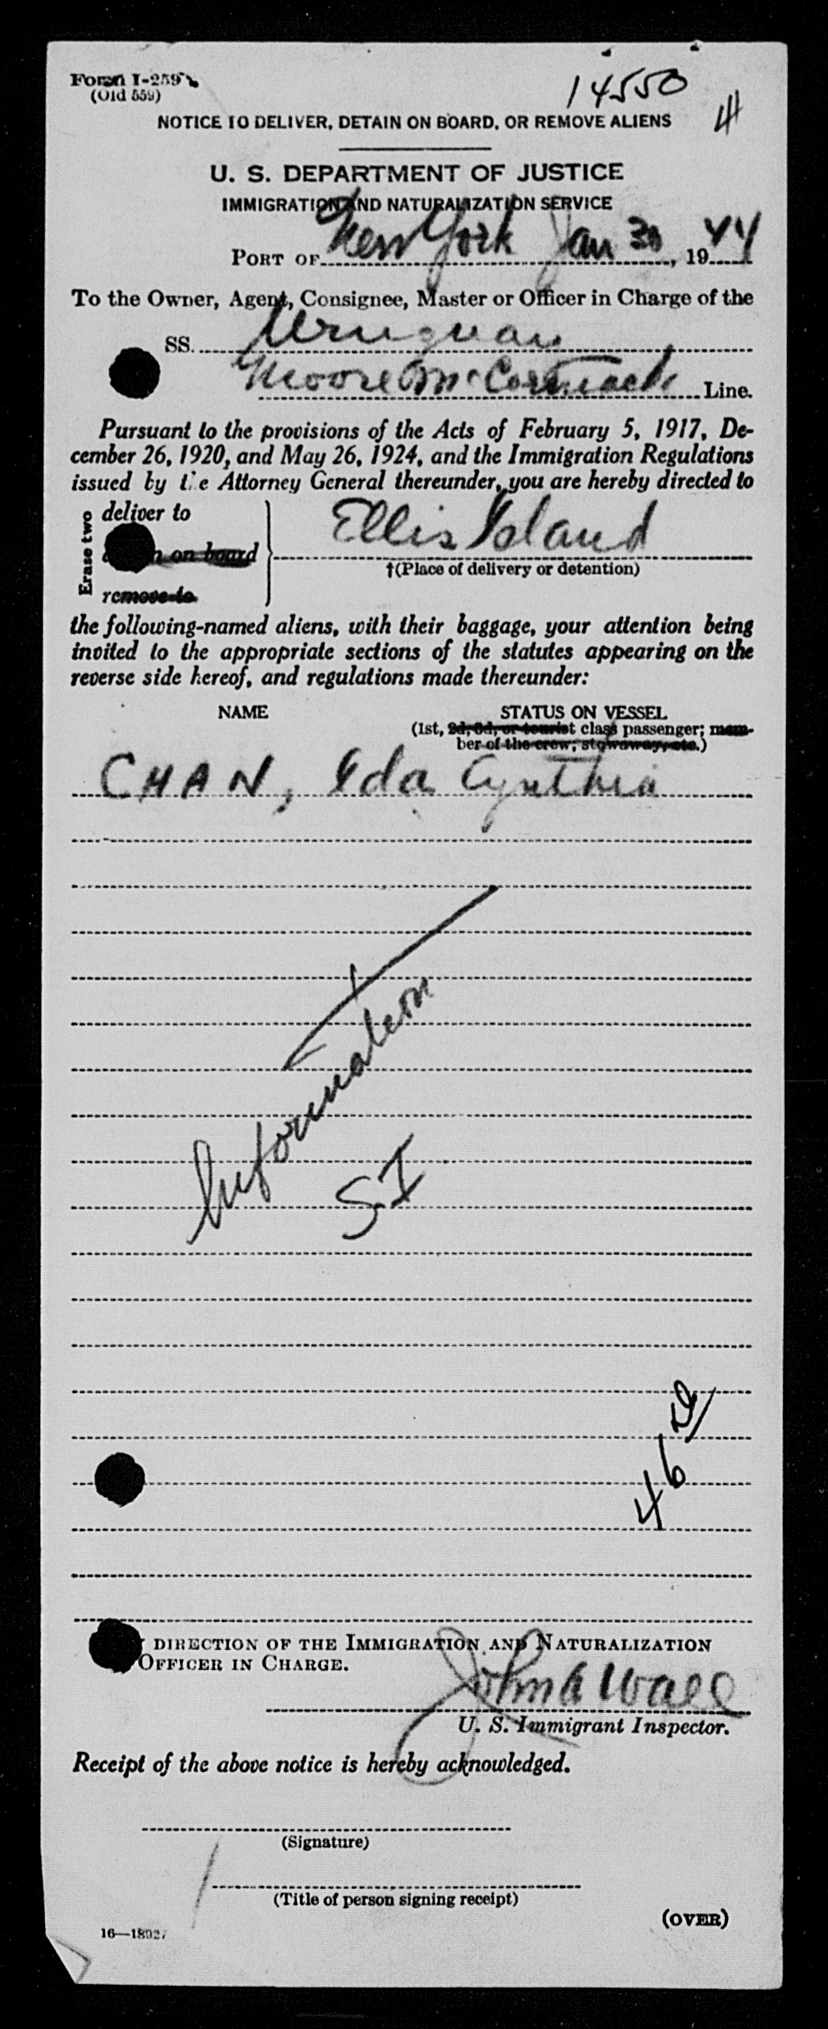 Form I-259
(Old 559)
14550
NOTICE TO DELIVER, DETAIN ON BOARD, OR REMOVE ALIENS
U. S. DEPARTMENT OF JUSTICE
IMMIGRATION AND NATURALIZATION SERVICE
PORT OF New York Jan 30, 1944
To the Owner, Agent, Consignee, Master or Officer in Charge of the
SS. Uruguay
Moore McCormack Line.
Pursuant to the provisions of the Acts of February 5, 1917, De-
cember 26, 1920, and May 26, 1924, and the Immigration Regulations
issued by the Attorney General thereunder, you are hereby directed to
Erase two
deliver to
on board
remove to
Ellis Island
†(Place of delivery or detention)
the following-named aliens, with their baggage, your attention being
invited to the appropriate sections of the statutes appearing on the
reverse side hereof, and regulations made thereunder:
NAME STATUS ON VESSEL
(1st, 2d, 3d, or tourist class passenger; mem-
ber of the crew; stowaway, etc.)
CHAN, Ida Cynthia
Information
SI
46
DIRECTION OF THE IMMIGRATION AND NATURALIZATION
OFFICER IN CHARGE.
John A Wall
U. S. Immigrant Inspector.
Receipt of the above notice is hereby acknowledged.
(Signature)
(Title of person signing receipt)
(OVER)
16—1892